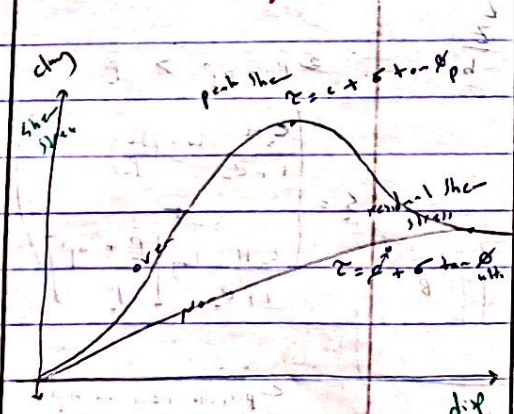 clay
shear
stress
peak shear
τ = c + σ tan ϕ p
over
residual shear
stress
τ = c⁰ + σ tan ϕ ult.
No
disp